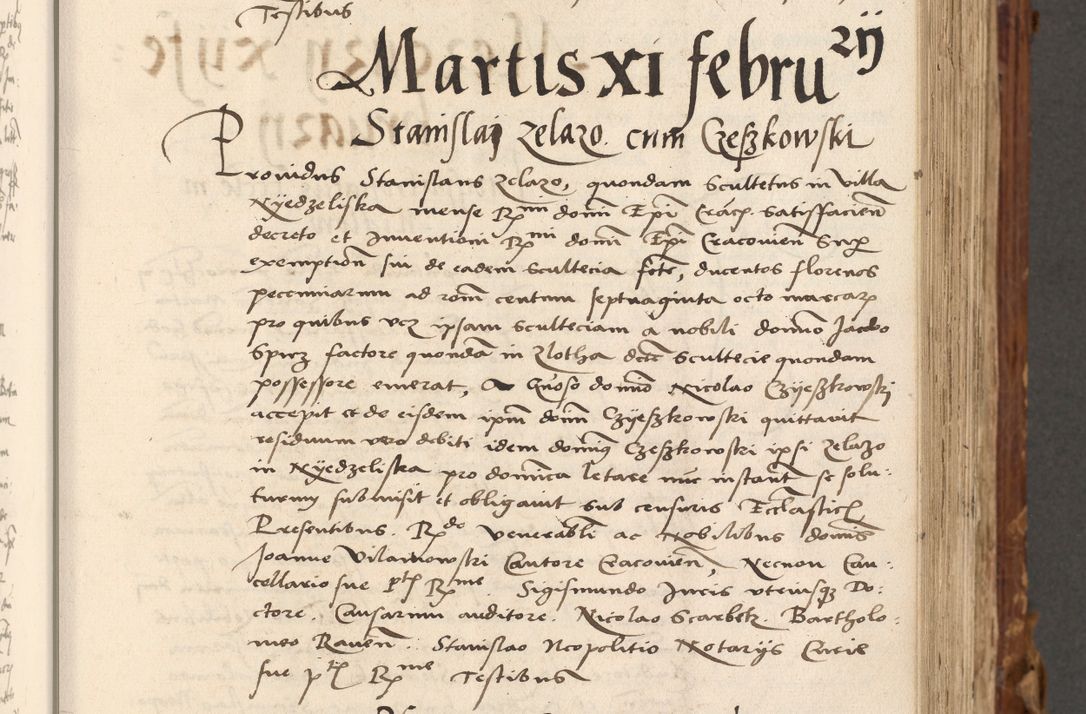 Testibus
Martis XI februarij
Stanislaj zelazo cum Czeszkowski
Providus Stanislaus zelazo, quondam scultetus in villa
Nyedzeliska mense Rmi domi Epi Crac. satisfacien
decreto et Inventioni Rmi domi Epi Cracovien sup
exemption sui de eadem scultecia fcte, ducentos florenos
pecuniarum ad rom centum septuaginta octo marcar
pro quibus vcz ipsam sculteciam a nobili domno Jacobo
Spicz factore quondā in Zlotha dcte scultecie quondam
possessore emerat, a Gnoso domno Nicolao Czyeszkowskj
accepit et de eisdem ipm domi Czyeszkowski quittavit
residuum vero debiti idem domis Czeszkowski ipsi zelazo
in Nyedzeliska pro domnica letare nunc instant se solu-
turum submisit et obligavit sub censuris Ecclastics
Presentibus. Rdo venerabli ac Nobilibus domis
Joanne Vilamowski Cantore Cracovien, Necnon Can-
cellario sue pte Rme. Sigismundo Juris utriusq Do-
ctore. Causarum auditore. Nicolao Scarbek. Bartholo-
meo Raven. Stanislao Neopolitio Notarys Curie
sue pte Rme Testibus